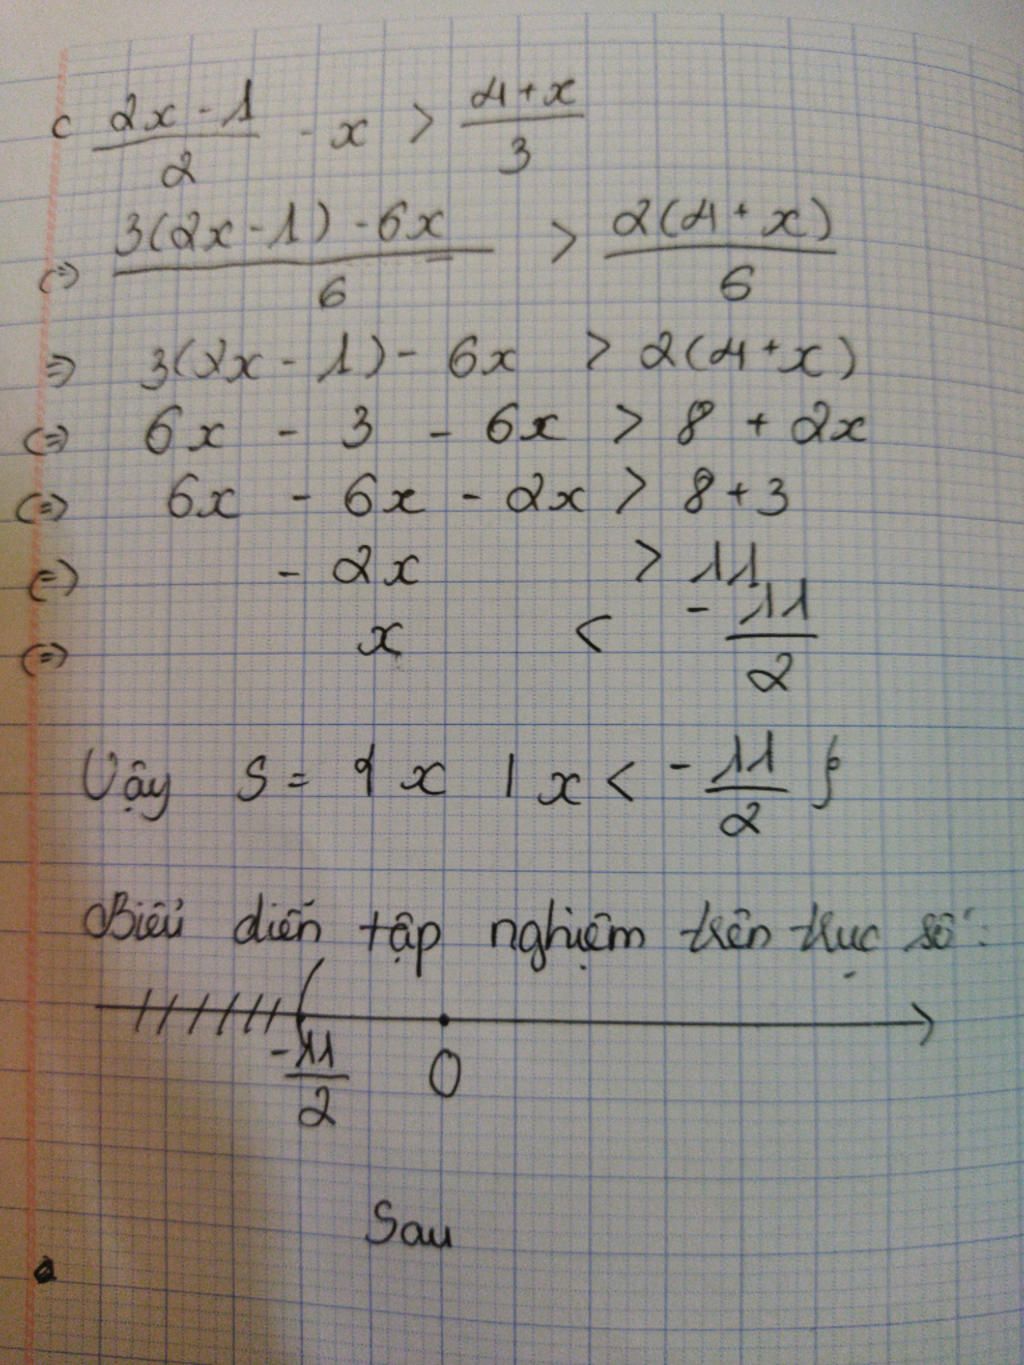 c (2x - 1)/2 - x > (4 + x)/3
(=) (3(2x - 1) - 6x)/6 > (2(4 + x))/6
=) 3(2x - 1) - 6x > 2(4 + x)
(=) 6x - 3 - 6x > 8 + 2x
(=) 6x - 6x - 2x > 8 + 3
(=) - 2x > 11
(=) x < - 11/2
Vậy S = { x | x < - 11/2 }
Biểu diễn tập nghiệm trên trục số:
-11/2 0
Sau